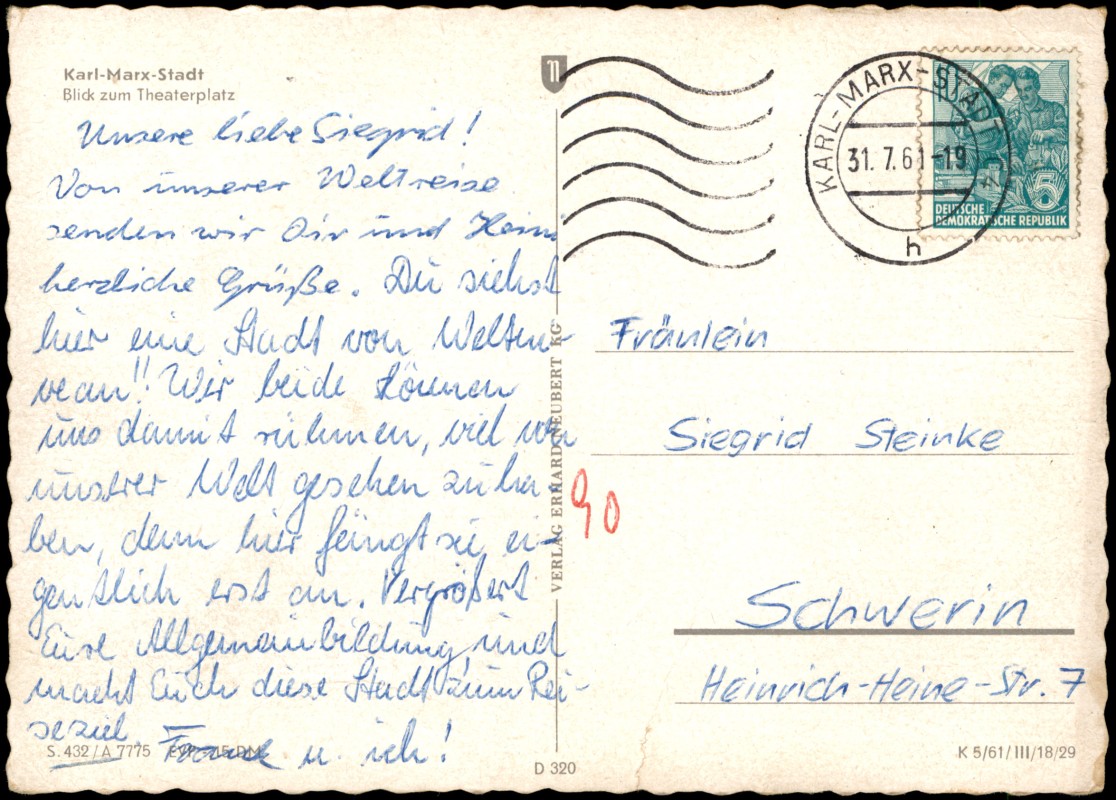 Karl-Marx-Stadt
Blick zum Theaterplatz
Unsere liebe Siegrid!
Von unserer Weltreise
senden wir Dir und Heinz
herzliche Grüße. Du siehst
hier eine Stadt von Weltni-
veau!! Wir beide können
uns damit rühmen, viel von
unserer Welt gesehen zu ha-
ben, denn hier fängt sie ei-
gentlich erst an. Vergrößert
Eure Allgemeinbildung und
macht Euch diese Stadt zum Rei-
seziel
u. ich!
S. 432/A 7775
D 320
K 5/61/III/18/29
VERLAG ERHARD NEUBERT KG
KARL-MARX-STADT C4
31.7.61-19
h
5
DEUTSCHE
DEMOKRATISCHE REPUBLIK
Fräulein
Siegrid Steinke
90
Schwerin
Heinrich-Heine-Str. 7